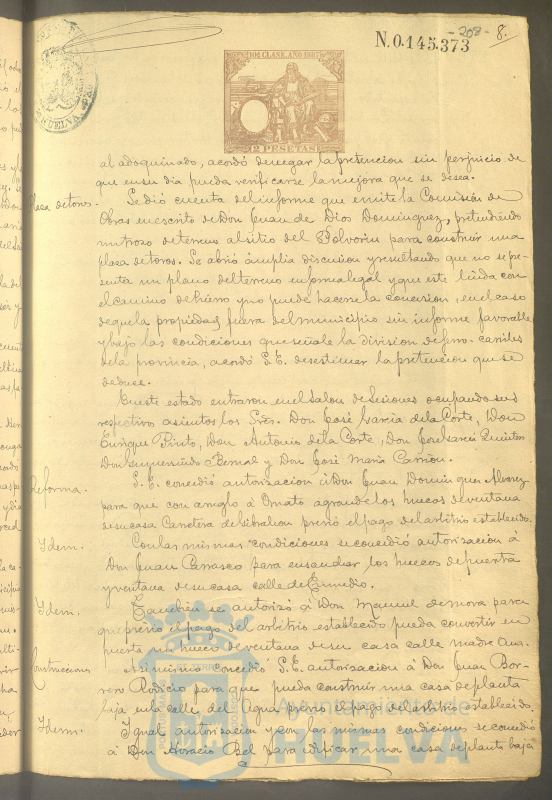 -208- 8.
N.0.145.373
10ª CLASE. AÑO 1887
2 PESETAS
HUELVA
al adoquinado, acordó denegar la pretencion sin perjuicio de
que en su dia pueda verificarse la mejora que se desea.
Plaza de toros. Se dió cuenta del informe que emite la Comision de
Obras en escrito de Don Juan de Dios Dominguez, pretendiendo
un trozo de terreno al sitio del Polvorin para construir una
plaza de toros. Se abrió ámplia discusion y resultando que no se pre-
senta un plano del terreno en forma legal y que este linda con
el camino de hierro y no puede hacerse la concesion, en el caso
de que la propiedad fuera del municipio sin informe favorable
y bajo las condiciones que señale la division de ferro-carriles
de la provincia, acordó S.E. desestimar la pretencion que se
deduce.
En este estado entraron en el Salon de Sesiones ocupando sus
respectivos asientos los Sres. Don José Garcia de la Corte, Don
Enrique Pinto, Don Antonio de la Corte, Don José Garcia Quintos
Don Gumersindo Bernal y Don José Maria Carrion.
Reforma. S.E. concedió autorizacion á Don Juan Dominguez Alvarez
para que con arreglo á Ornato agrande los huecos de ventana
de su casa Carretera de Gibraleon prévio el pago del arbitrio establecido.
Idem. Con las mismas condiciones se concedió autorizacion á
Don Juan Carrasco para ensanchar los huecos de puerta
y ventana de su casa calle de Enmedio.
Idem. Tambien se autorizó á Don Manuel de Mora para
que prévio el pago del arbitrio establecido pueda convertir en
puerta un hueco de ventana de su casa calle Madre Ana.
Construccion Asi mismo concedió S.E. autorizacion á Don Juan Bor-
rero Rodicio para que pueda construir una casa de planta
baja en la calle del Agua prévio el pago del arbitrio establecido.
Idem. Igual autorizacion y con las mismas condiciones se concedió
á Don Horacio Bel para edificar una casa de planta baja
Ayuntamiento de
HUELVA